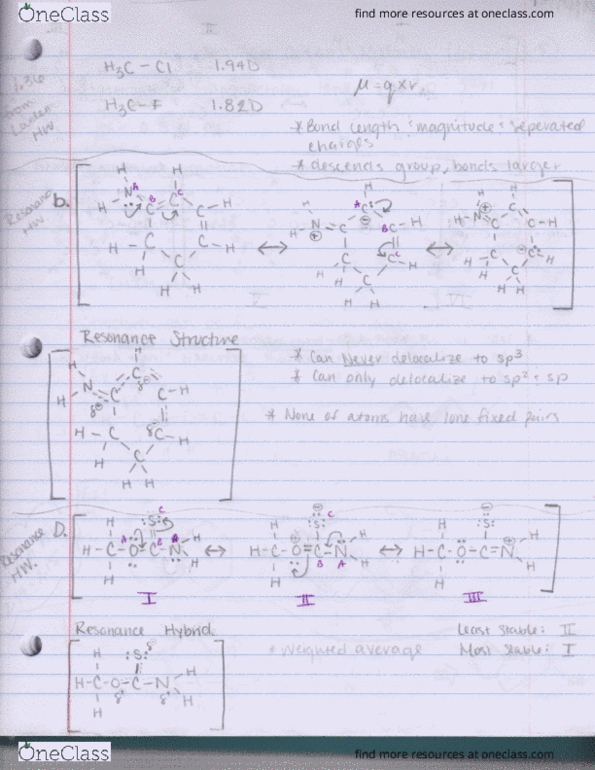 OneClass
find more resources at oneclass.com
H₃C – Cl 1.94D
H₃C – F 1.82D
μ = q × r
1.36
from
HW
* Bond length : magnitude : seperated
charges
* descends group, bonds larger
Resonance
HW.
b.
Resonance Structure
* Can Never delocalize to sp³
* Can only delocalize to sp² : sp
* None of atoms have lone fixed pairs
Resonance
HW.
D.
I
II
III
Resonance Hybrid
* weighted average
Least stable: II
Most stable: I
OneClass
find more resources at oneclass.com